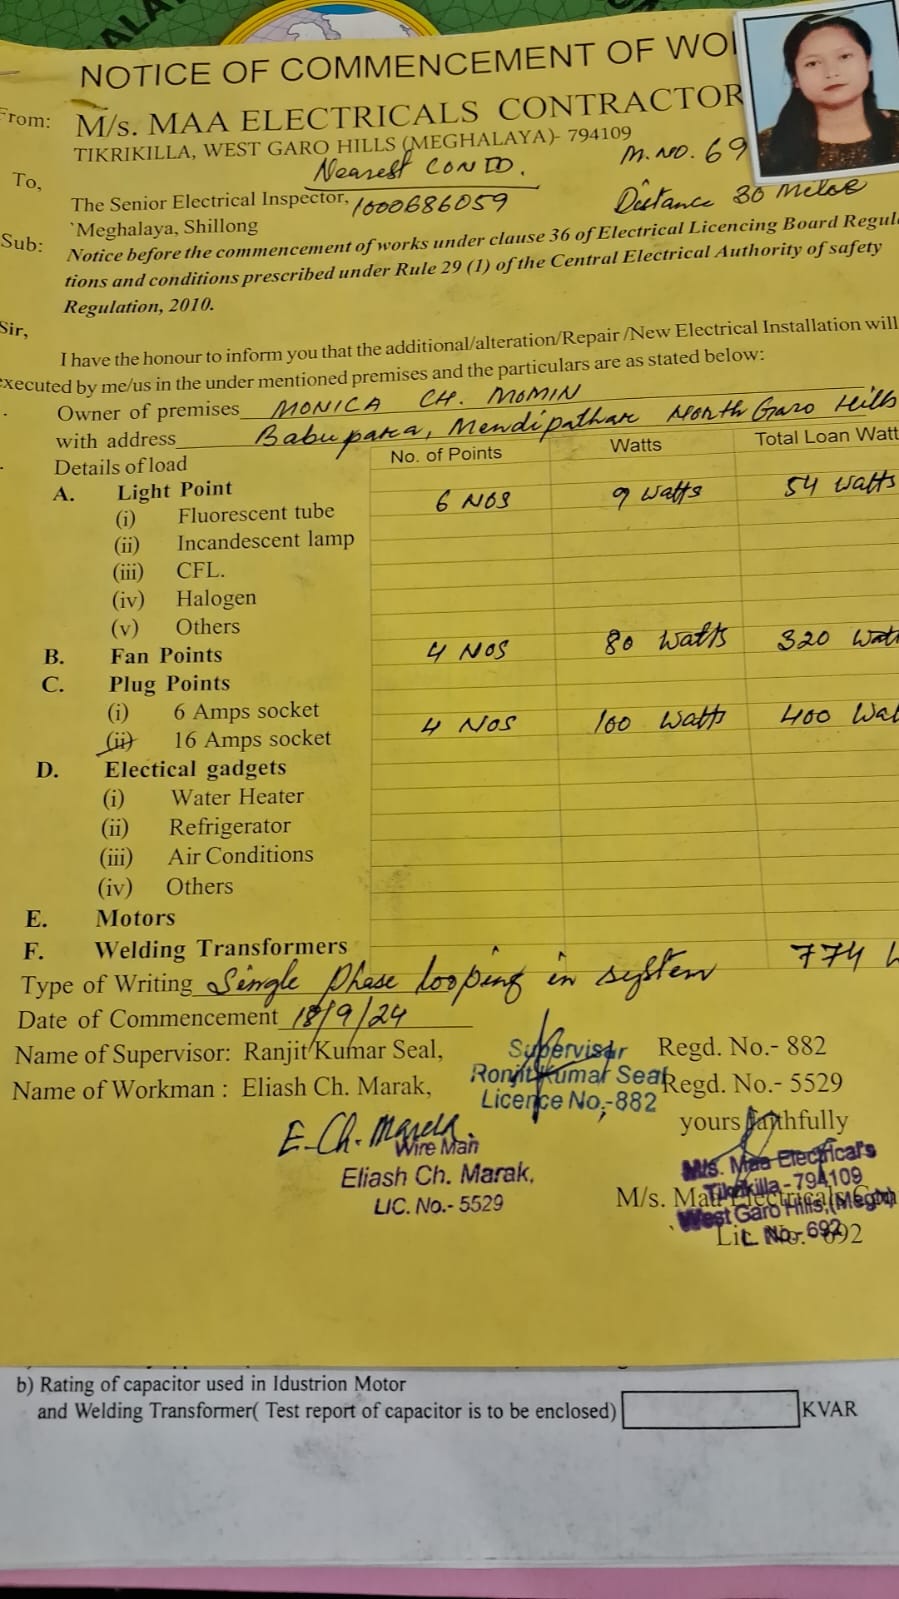 NOTICE OF COMMENCEMENT OF WO
From: M/s. MAA ELECTRICALS CONTRACTOR
TIKRIKILLA, WEST GARO HILLS (MEGHALAYA)- 794109
Nearest CON ID. M.NO. 69
To,
The Senior Electrical Inspector, 1000686059 Distance 30 Meter
`Meghalaya, Shillong
Sub: Notice before the commencement of works under clause 36 of Electrical Licencing Board Regul
tions and conditions prescribed under Rule 29 (1) of the Central Electrical Authority of safety
Regulation, 2010.
Sir,
I have the honour to inform you that the additional/alteration/Repair /New Electrical Installation will
executed by me/us in the under mentioned premises and the particulars are as stated below:
Owner of premises MONICA CH. MOMIN
with address Babupara, Mendipathar North Garo Hills
Details of load No. of Points Watts Total Loan Watt
A. Light Point 6 NOS 9 Watts 54 Watts
(i) Fluorescent tube
(ii) Incandescent lamp
(iii) CFL.
(iv) Halogen
(v) Others
B. Fan Points 4 NOS 80 Watts 320 Watt
C. Plug Points
(i) 6 Amps socket 4 NOS 100 Watts 400 Wat
(ii) 16 Amps socket
D. Electical gadgets
(i) Water Heater
(ii) Refrigerator
(iii) Air Conditions
(iv) Others
E. Motors
F. Welding Transformers 774
Type of Writing Single Phase looping in system
Date of Commencement 18/9/24
Name of Supervisor: Ranjit Kumar Seal, Regd. No.- 882
Supervisor
Ronjit Kumar Seal
Licence No,-882
Name of Workman : Eliash Ch. Marak, Regd. No.- 5529
yours faithfully
E. Ch. Marak.
Wire Man
Eliash Ch. Marak,
LIC. No.- 5529
M/s. Maa Electrical's
Tikrikilla - 794109
West Garo Hills, (Megh)
L. No.- 692
M/s. Maa Electricals Con
Lic. No.- 692
b) Rating of capacitor used in Idustrion Motor
and Welding Transformer( Test report of capacitor is to be enclosed) KVAR